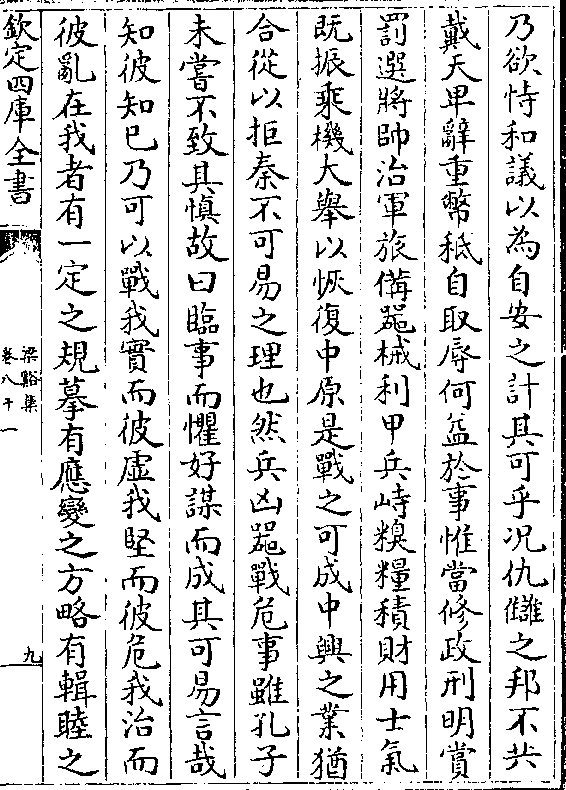 乃欲恃和議以為自安之計其可乎况仇讎之邦不共
戴天卑辭重幣秪自取辱何益於事惟當修政刑明賞
罰選將帥治軍旅備器械利甲兵峙糗糧積財用士氣
既振乘機大舉以恢復中原是戰之可成中興之業猶
合從以拒秦不可易之理也然兵凶器戰危事雖孔子
未嘗不致其慎故曰臨事而懼好謀而成其可易言哉
知彼知已乃可以戰我實而彼虛我堅而彼危我治而
彼亂在我者有一定之規摹有應變之方略有輯睦之
欽定四庫全書
梁谿集
卷八十一
九